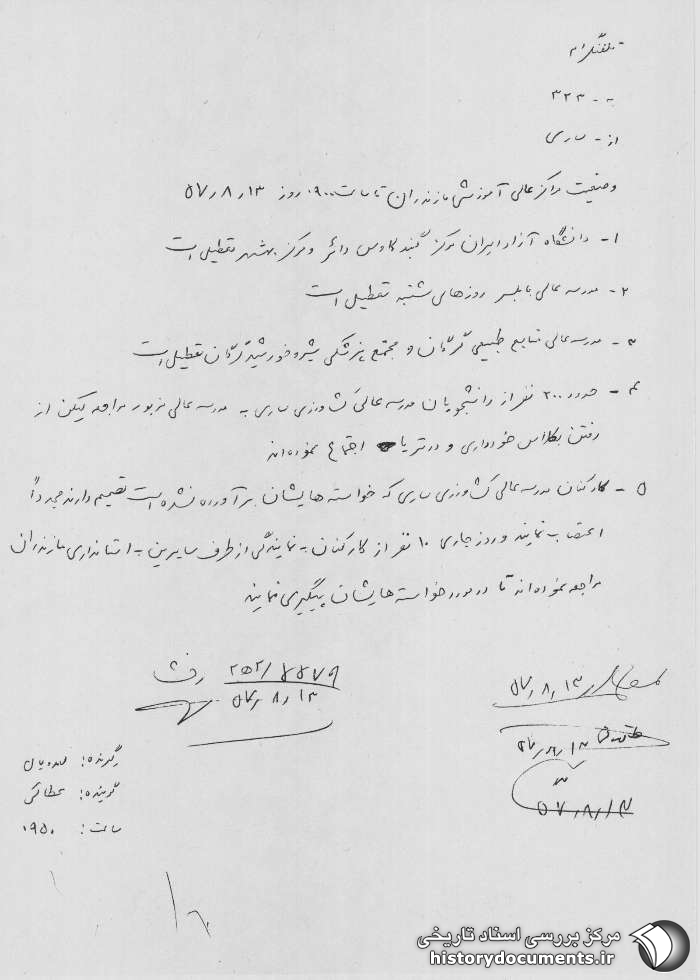 تلفنگرام
به - ۳۲۳
از - ساری
وضعیت مراکز عالی آموزشی مازندران تا ساعت ۰۹۰۰ روز ۵۷٫۸٫۱۳
۱- دانشگاه آزاد ایران مرکز گنبد کاوس دائر و مرکز بهشهر تعطیل است
۲- مدرسه عالی بابلسر روزهای شنبه تعطیل است
۳- مدرسه عالی منابع طبیعی گرگان و مجتمع پزشکی شیر و خورشید گرگان تعطیل است
۴- حدود ۲۰۰ نفر از دانشجویان مدرسه عالی کشاورزی ساری به مدرسه عالی مزبور مراجعه لیکن از
رفتن بکلاس خودداری و در تریا اجتماع نموده‌اند
۵- کارکنان مدرسه عالی کشاورزی ساری که خواسته‌هایشان برآورده نشده است تصمیم دارند مجدداً
اعتصاب نمایند و روز جاری ۱۰ نفر از کارکنان به نمایندگی از طرف سایرین به استانداری مازندران
مراجعه نموده‌اند تا در مورد خواسته‌هایشان پیگیری نمایند
۵۷٫۸٫۱۳
۵۷٫۸٫۱۳
گیرنده:
گوینده: عطائی
ساعت: ۰۹۵۰
۵۷٫۸٫۱۴
مرکز بررسی اسناد تاریخی
historydocuments.ir